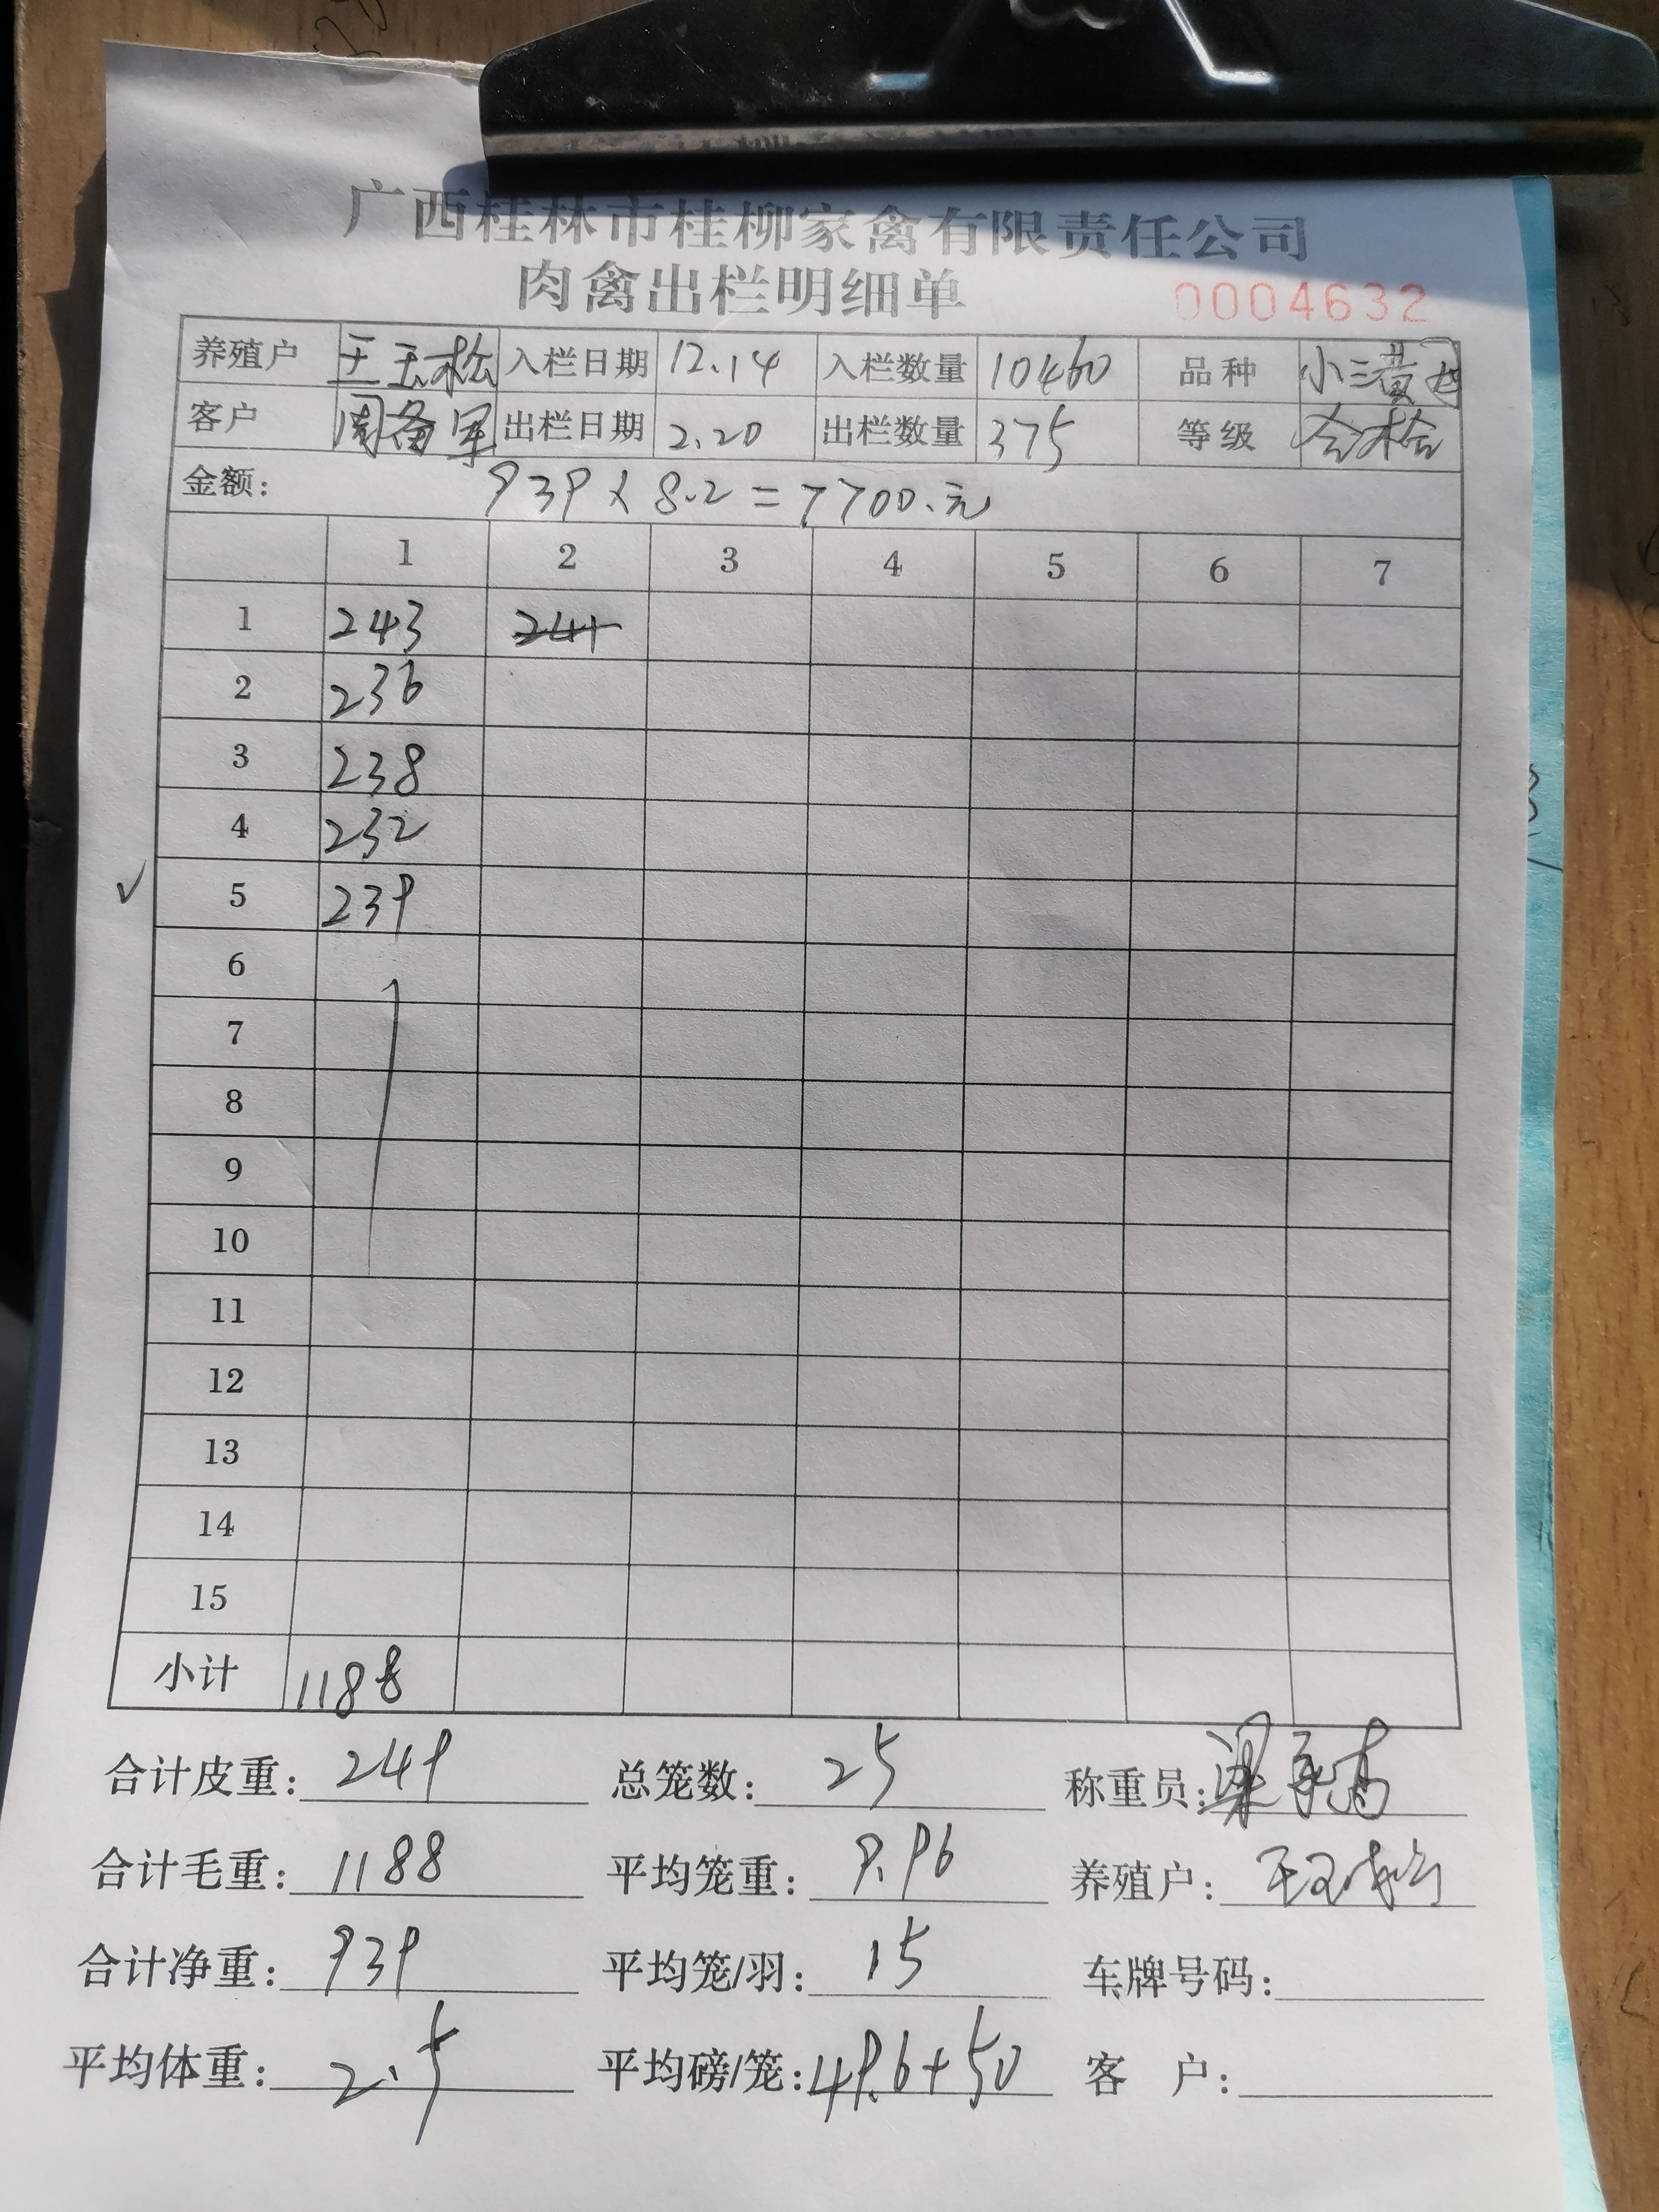 广西桂林市桂柳家禽有限责任公司
肉禽出栏明细单
0004632
养殖户 王玉松 入栏日期 12.14 入栏数量 10460 品种 小三黄
客户 周备军 出栏日期 2.20 出栏数量 375 等级 合格
金额: 939×8.2=7700.元
1 2 3 4 5 6 7
1 243 241
2 236
3 238
4 232
✓ 5 239
6
7
8
9
10
11
12
13
14
15
小计 1188
合计皮重: 249 总笼数: 25 称重员: 梁
合计毛重: 1188 平均笼重: 9.96 养殖户: 王玉松
合计净重: 939 平均笼/羽: 15 车牌号码:
平均体重: 2.5 平均磅/笼: 49.6+50 客 户: